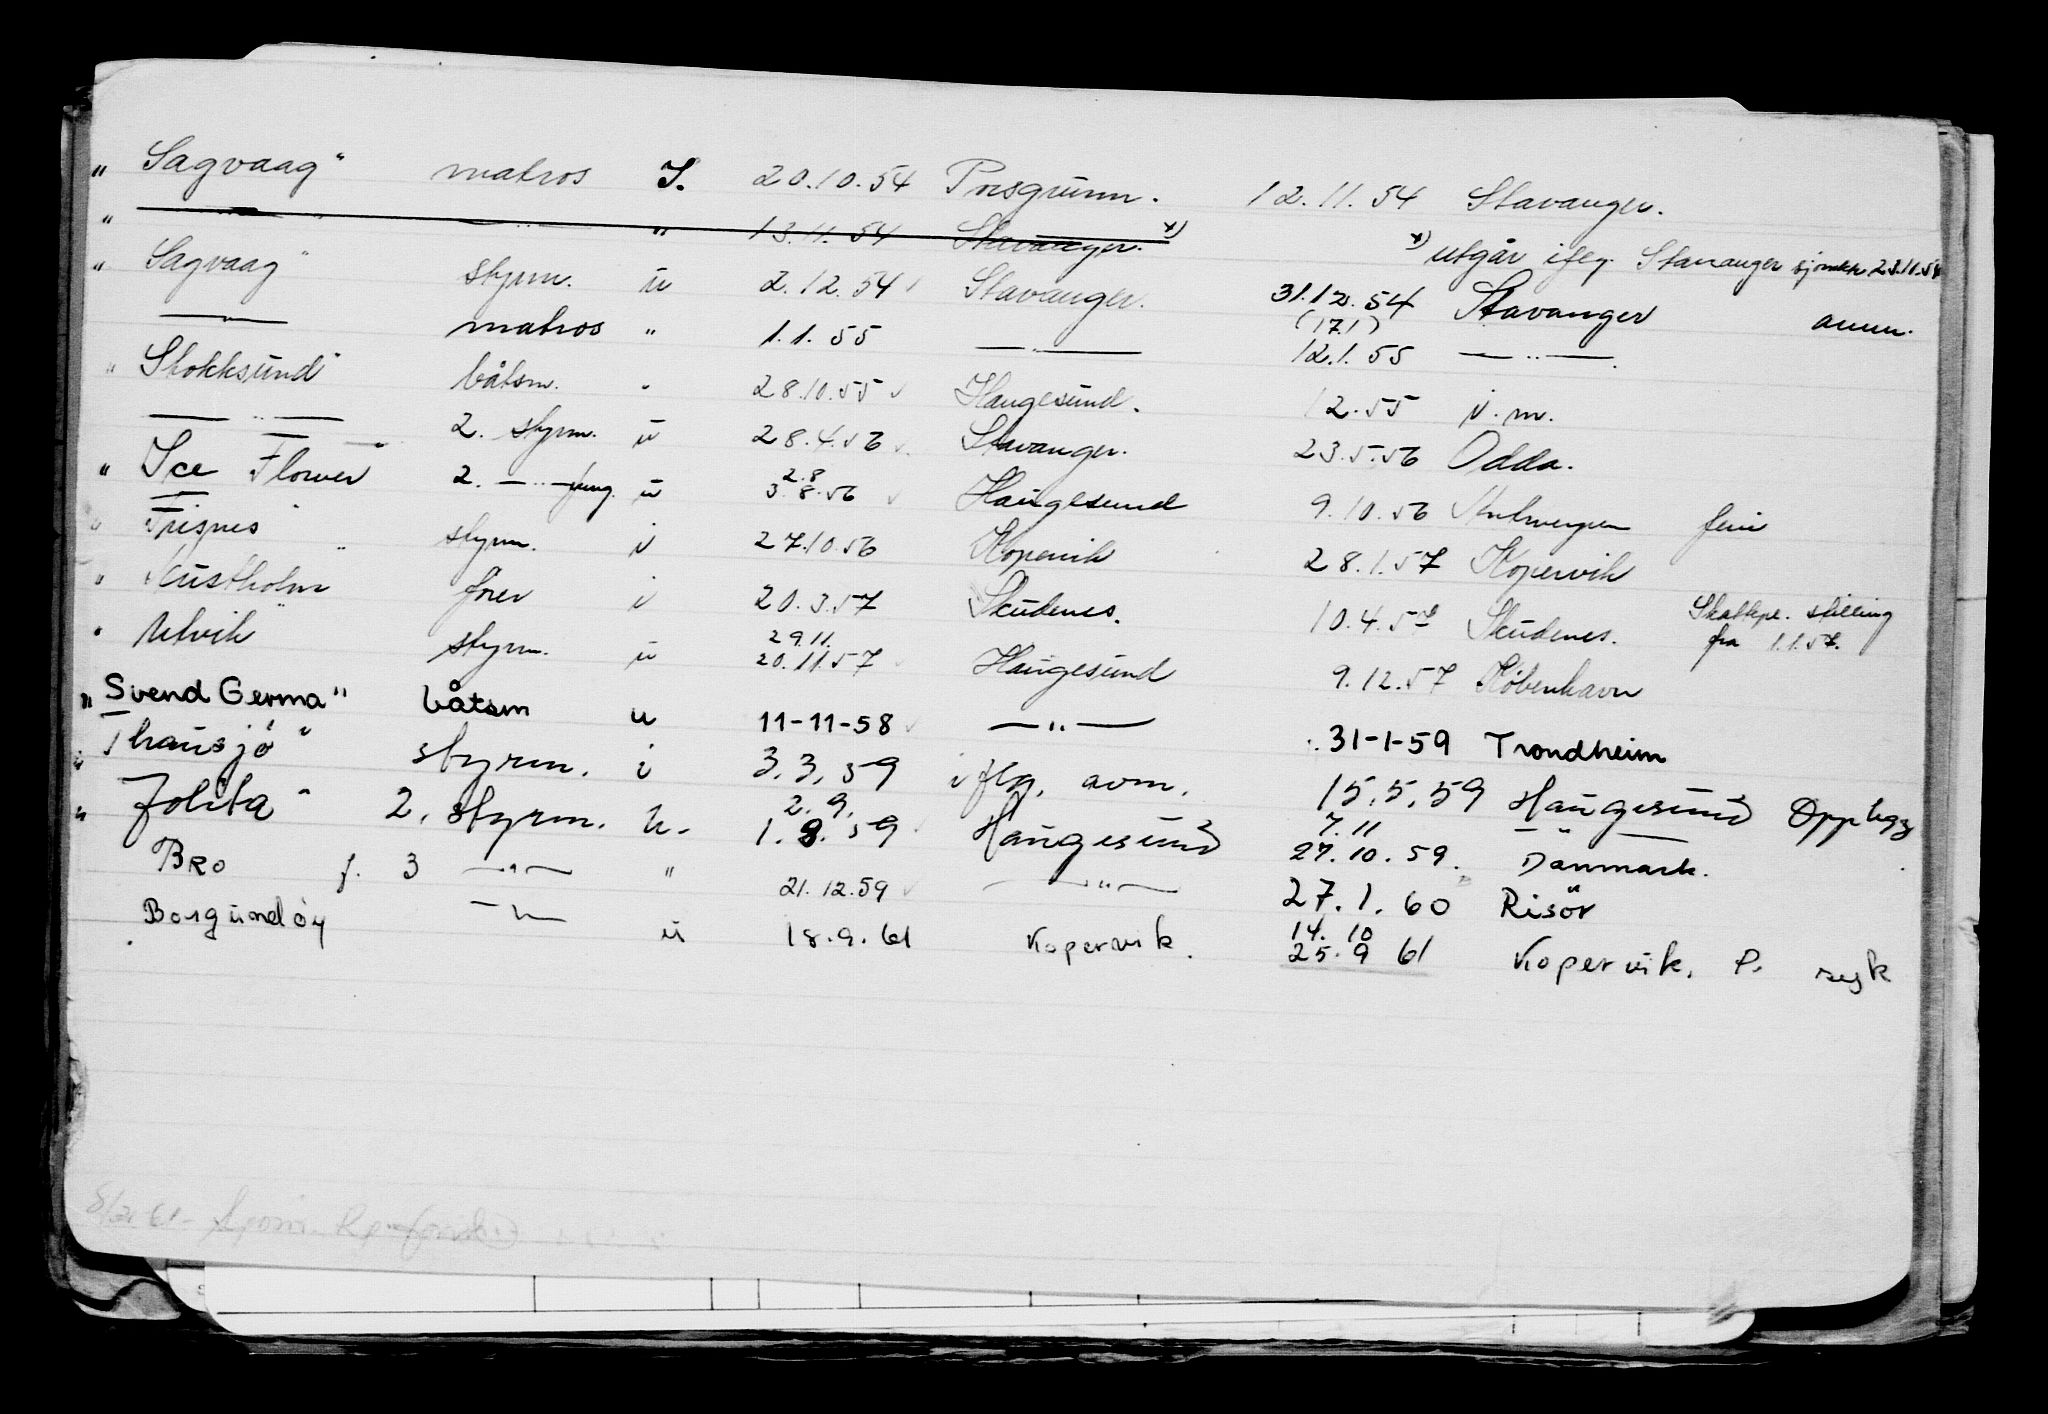 „ Sagvaag" matros I. 20.10.54 Porsgrunn. 12.11.54 Stavanger.
„ —„— " 13.11.54 Stavanger. x) x) utgår ifølg. Stavanger sjømktr. 23.11.54
„ Sagvaag" styrm. u 2.12.54 Stavanger. 31.12.54 Stavanger avm.
—„— matros " 1.1.55 —„— (17.1) 12.1.55 —„—.
„ Stokksund" båtsm. " 28.10.55 Haugesund. 12.55 i. m.
—„— 2. styrm. u 28.4.56 Stavanger. 23.5.56 Odda.
„ Ice Flower" 2. —„— u 2.8 3.8.56 Haugesund 9.10.56 Antwerpen
„ styrm. i 27.10.56 Kopervik 28.1.57 Kopervik
„ fører i 20.3.57 Skudenes. 10.4.57 Skudenes. Skattepl. stilling fra 1.1.57.
„ Utvik" styrm. u 29.11. 20.11.57 Haugesund 9.12.57 København
„ Svend Germa" båtsm u 11-11-58 —„— 31-1-59 Trondheim
„ Thausjö" styrm. i 3.3.59 i flg. avm. 15.5.59 Haugesund Opplegg
„ Jolita" 2. styrm. u. 2.9. 1.8.59 Haugesund 7.11 27.10.59. —„— Danmark.
BRO f. 3 —„— " 21.12.59 —„— 27.1.60 Risör
Borgundöy —„— u 18.9.61 Kopervik. 14.10 25.9 61 Kopervik. P. syk